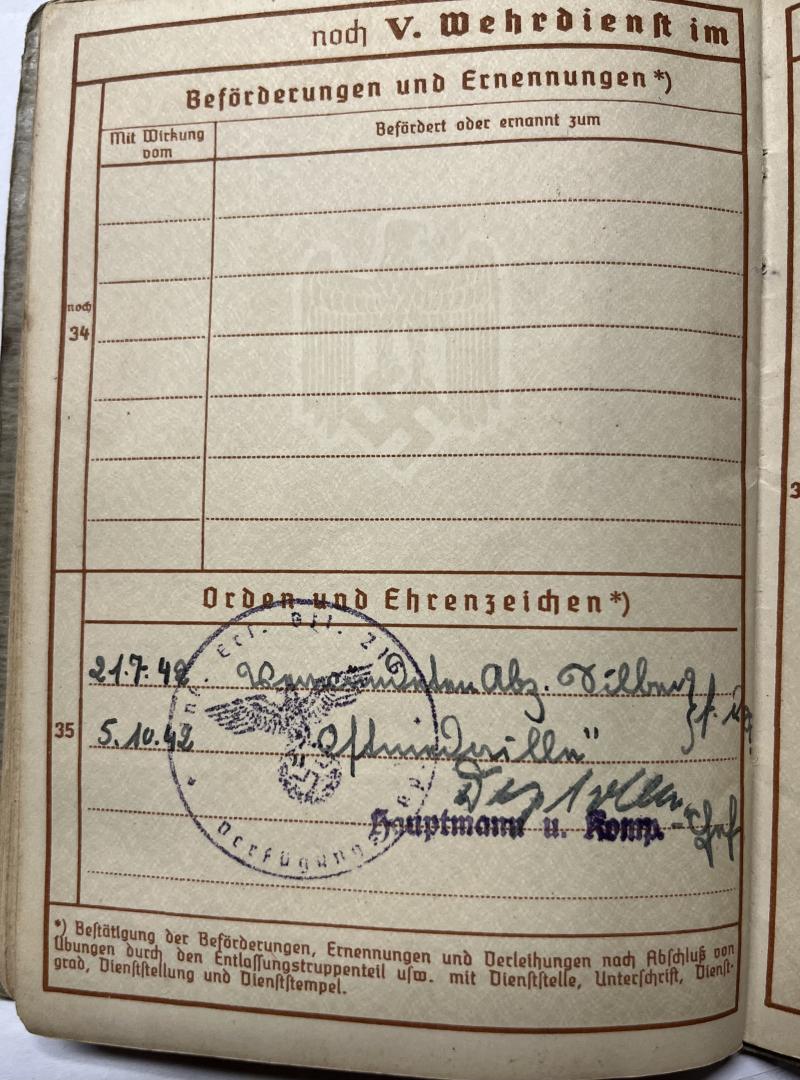 noch V. Wehrdienst im
Beförderungen und Ernennungen*)
Mit Wirkung
vom
Befördert oder ernannt zum
noch
34
Orden und Ehrenzeichen*)
Erf. Btl. 216
21.7.42. Verwundeten Abz. Silber
35
5.10.42 "Ostmedaille"
Hauptmann u. Komp.-Chef
Verfügungs
*) Bestätigung der Beförderungen, Ernennungen und Verleihungen nach Abschluß von
Übungen durch den Entlassungstruppenteil usw. mit Dienststelle, Unterschrift, Dienst-
grad, Dienststellung und Dienststempel.
3